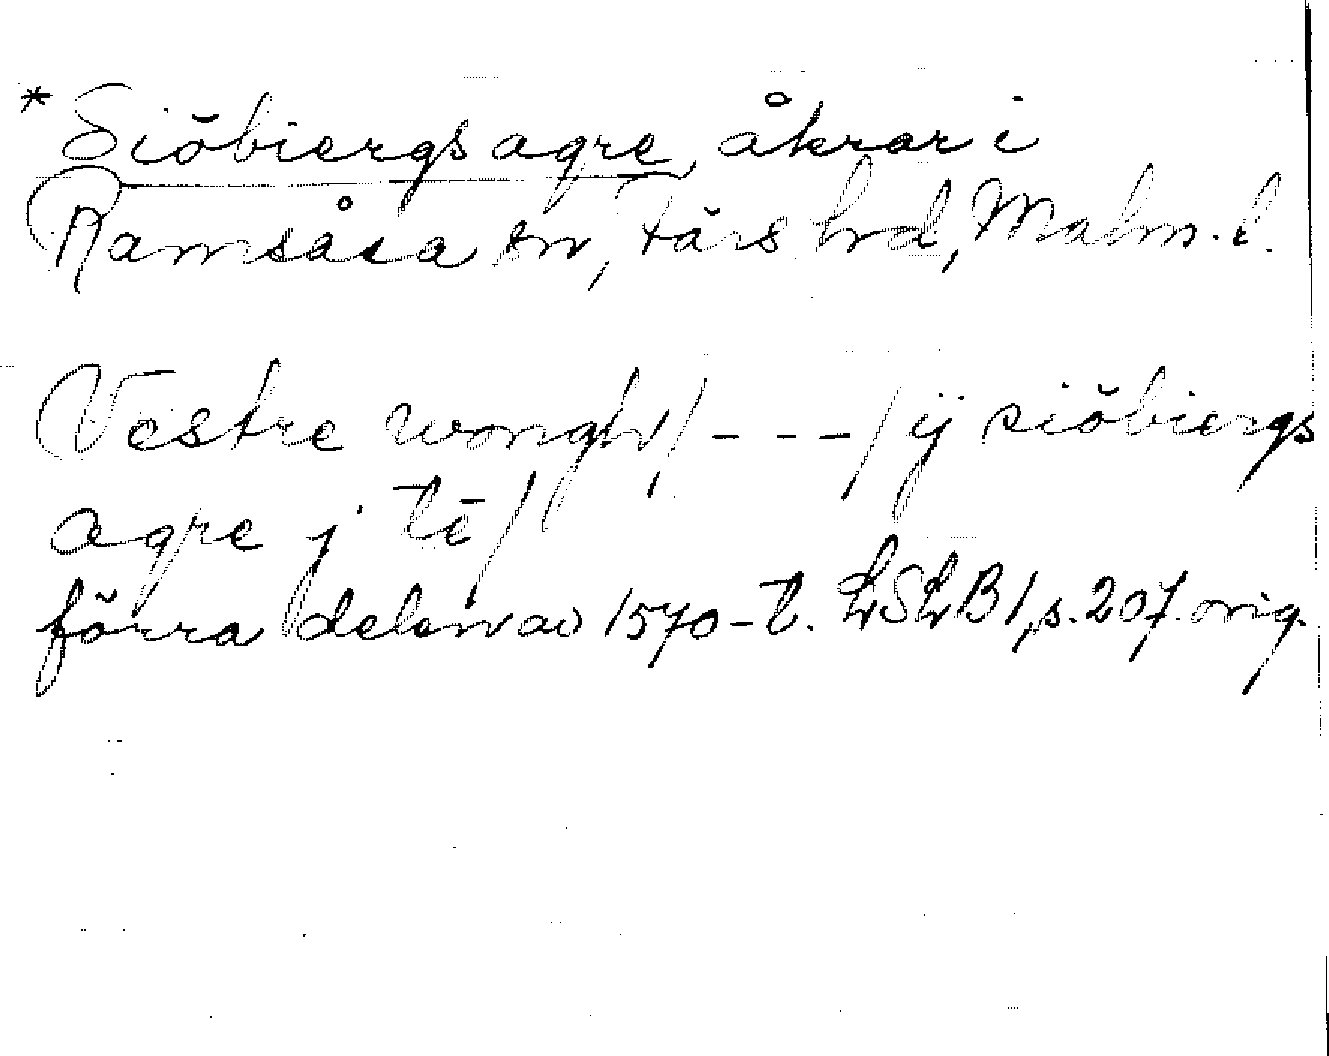 * Siöbiergs agre, åkrar i
Ramsåsa sn, Färs hrd, Malm. l.
Vestre wongh/ - - - / ij siöbiergs
agre j tē/
förra delen av 1570-t. LSLB 1, s. 207. orig.